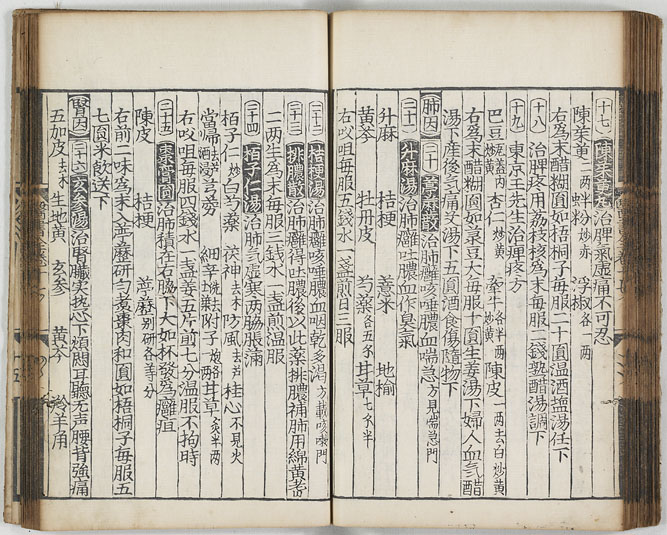 （十七）陳茱萸丸治脾氣虚痛不可忍
陳茱萸一两半粉炒赤　浮椒各一两
右爲末醋糊圓如梧桐子毎服二十圓温酒塩湯任下
（十八）治脾疼用荔枝核爲末毎服二錢熱醋湯調下
（十九）東京王先生治脾疼方
巴豆　杏仁炒黄　牽牛各半两炒黄　陳皮一两去白炒黄
右爲末醋糊圓如菉豆大毎服十圓生姜湯下婦人血氣醋
湯下産後氣痛艾湯下五圓酒食傷隨物下
（肺囚）（二十）葶藶散治肺癰咳唾膿血喘急方見喘急門
（二十一）升麻湯治肺癰吐膿血作臭氣
升麻　桔梗　薏米　地榆
黄芩　牡丹皮　芍薬各五分　甘草七分半
右㕮咀毎服五錢水一盞煎日三服
（二十二）桔梗湯治肺癰咳唾膿血咽乾多渴方載咳嗽門
（二十三）排膿散治肺癰得吐膿後以此薬排膿補肺用綿黄耆
二两生爲末毎服三錢水一盞煎温服
（二十四）栢子仁湯治肺氣虚寒两脇脹滿
栢子仁炒　白芍薬　茯神去木　防風去芦　桂心不見火
當歸去芦酒浸　芎藭　細辛　附子炮各一两　甘草炙半两
右㕮咀毎服四錢水一盞姜五片煎七分温服不拘時
（二十五）棗膏圓治肺積在右脇下大如杯發爲癰疽
陳皮　桔梗　葶藶别研各等分
右前二味爲末入葶藶研匀煮棗肉和圓如梧桐子毎服五
七圓米飲送下
（腎囚）（二十六）玄参湯治腎臓實熱心下煩悶耳聽无声腰背強痛
五加皮去木　生地黄　玄参　黄芩　羚羊角